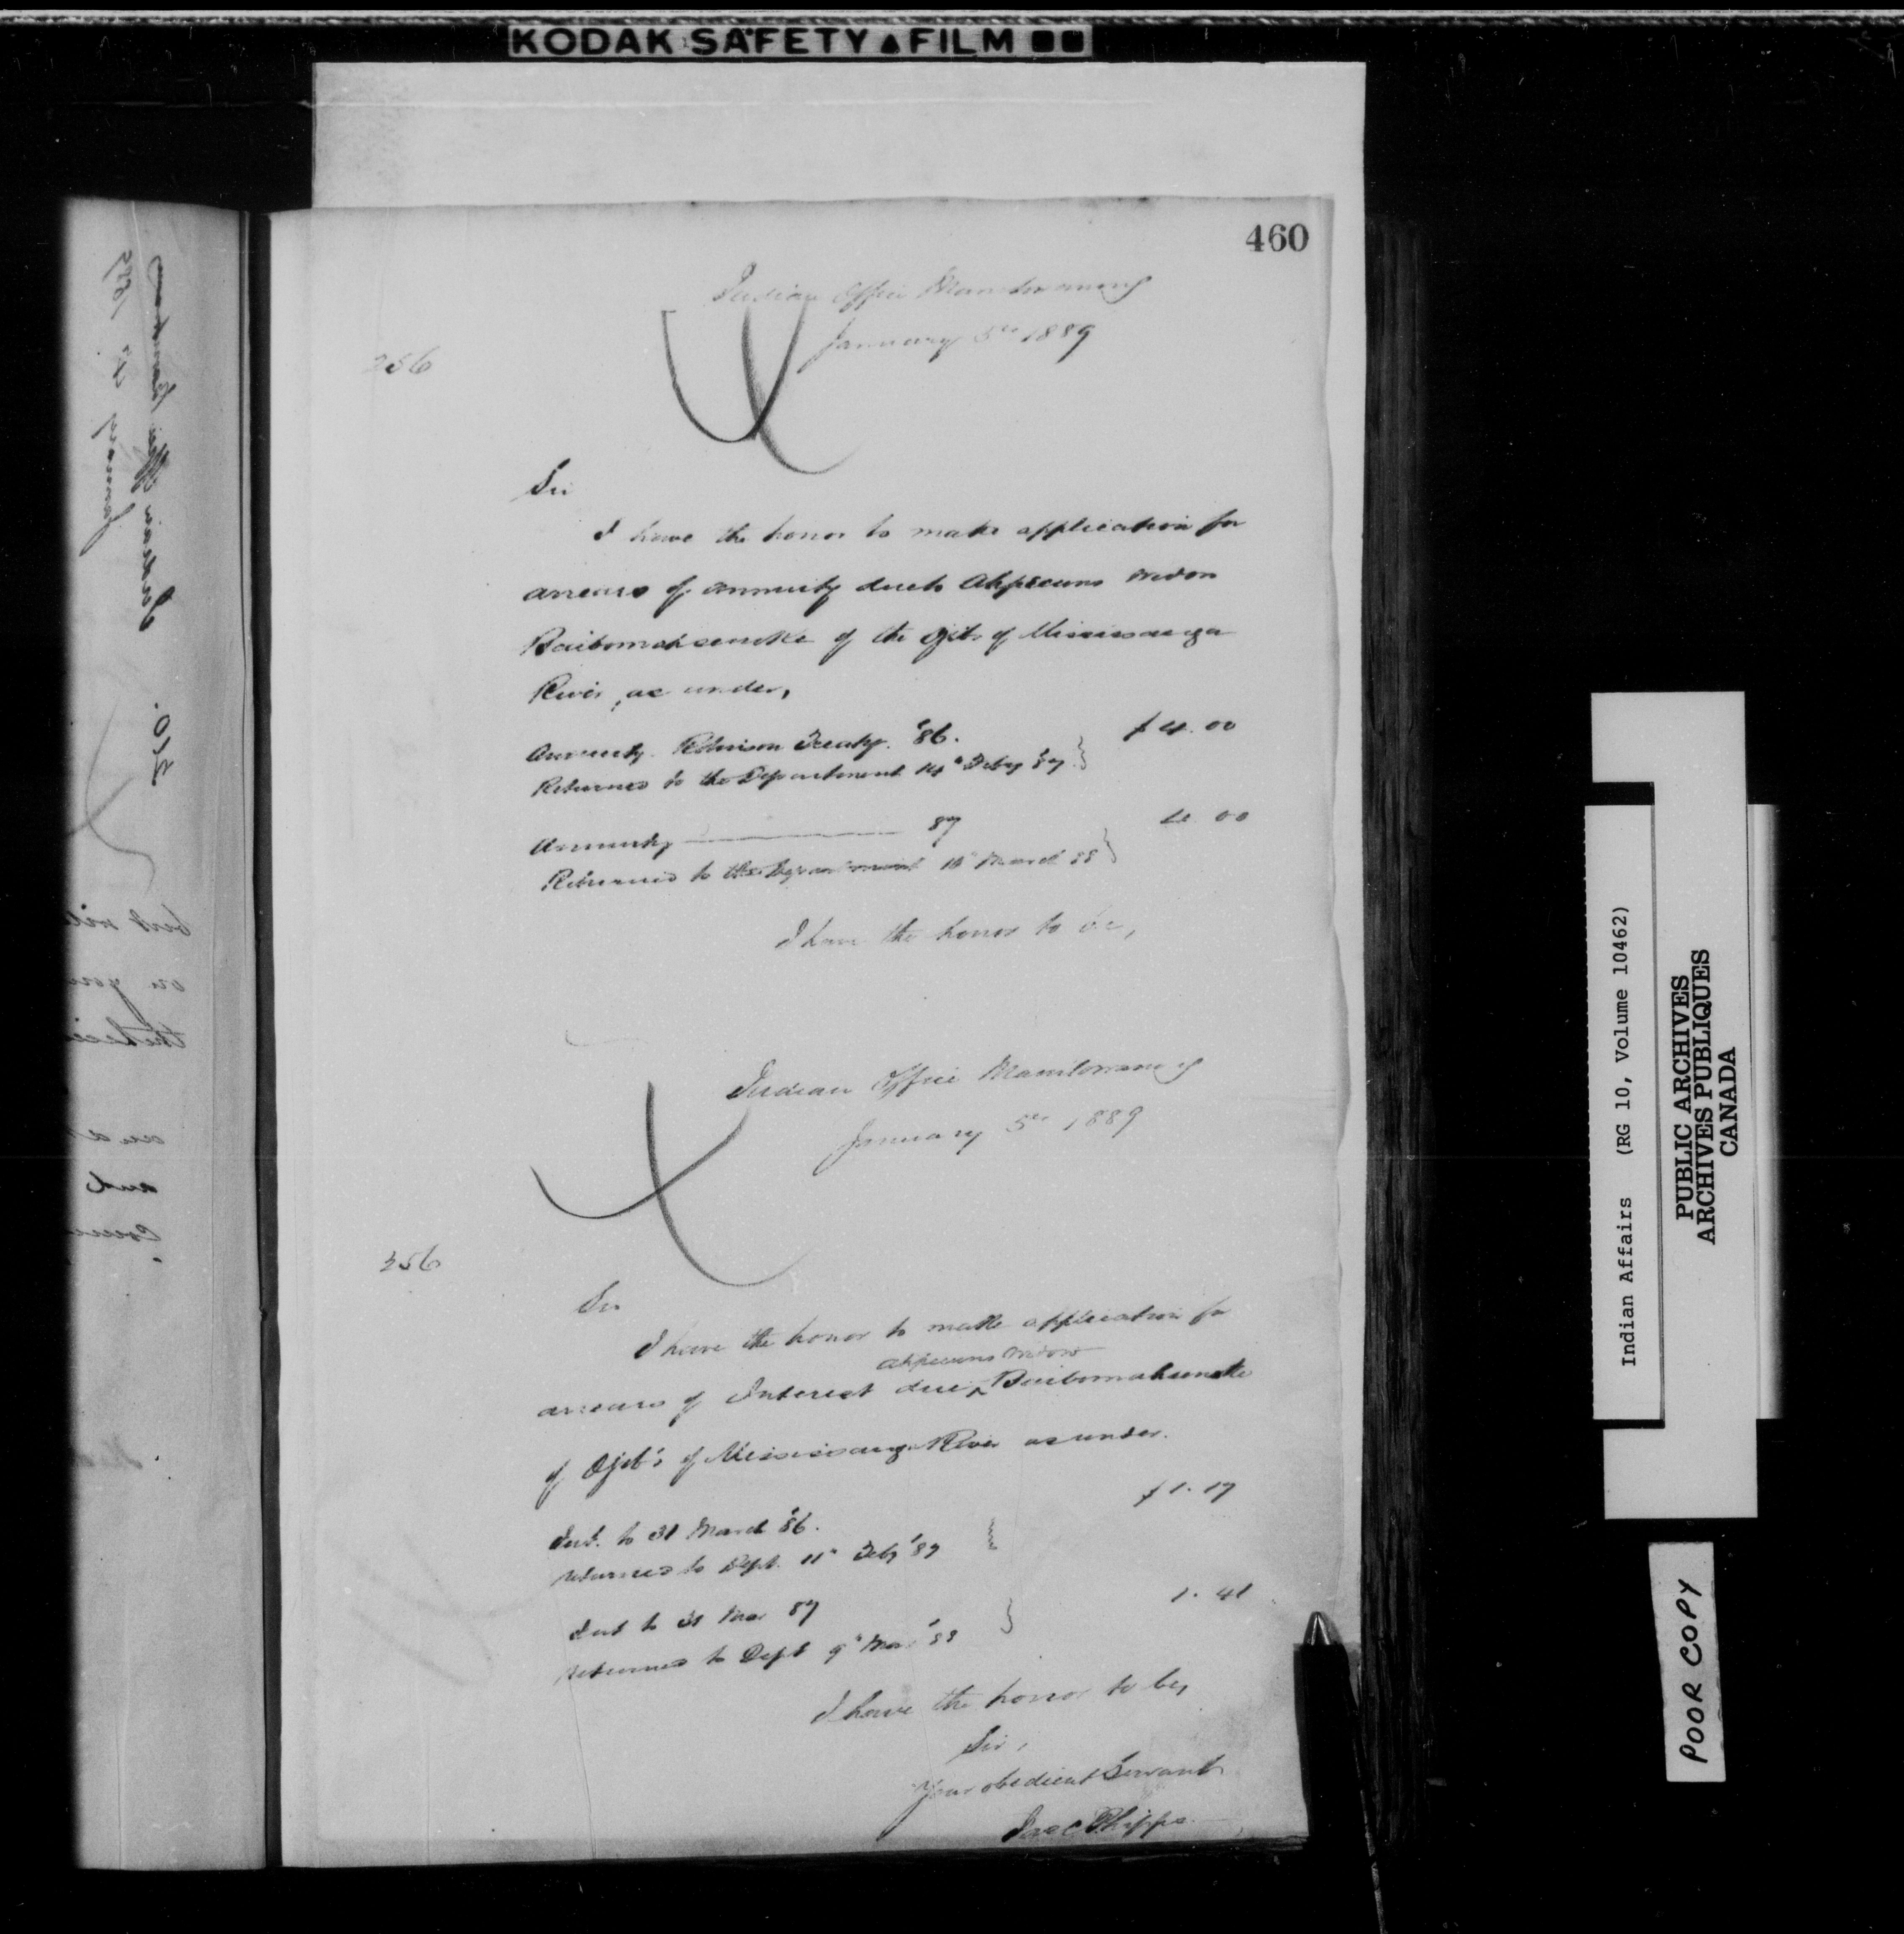 KODAK SAFETY ▲ FILM
460
Indian Office Manitowaning
January 5th 1889
256
Sir
I have the honor to make application for
arrears of annuity due to Ahpecuns widow
of the Ojib. of Mississauga
River, as under,
Annuity Robinson Treaty. '86.
$4.00
Returned to the Department 14th Feby '87
Annuity 87
4.00
Returned to the Department 14th March 88
I have the honor to be,
Indian Office Manitowaning
January 5th 1889
256
Sir
I have the honor to make application for
Ahpecuns widow
arrears of Interest due
of Ojib's of Mississauga River as under.
$1.17
Int. to 31 March '86.
returned to Dept. 11th Feby '87
1.41
Int to 31 Mar 87
returned to Dept 9th Mar '88
I have the honor to be,
Sir,
Your obedient Servant
Jas C Phipps
Indian Affairs (RG 10, Volume 10462)
PUBLIC ARCHIVES
ARCHIVES PUBLIQUES
CANADA
POOR COPY